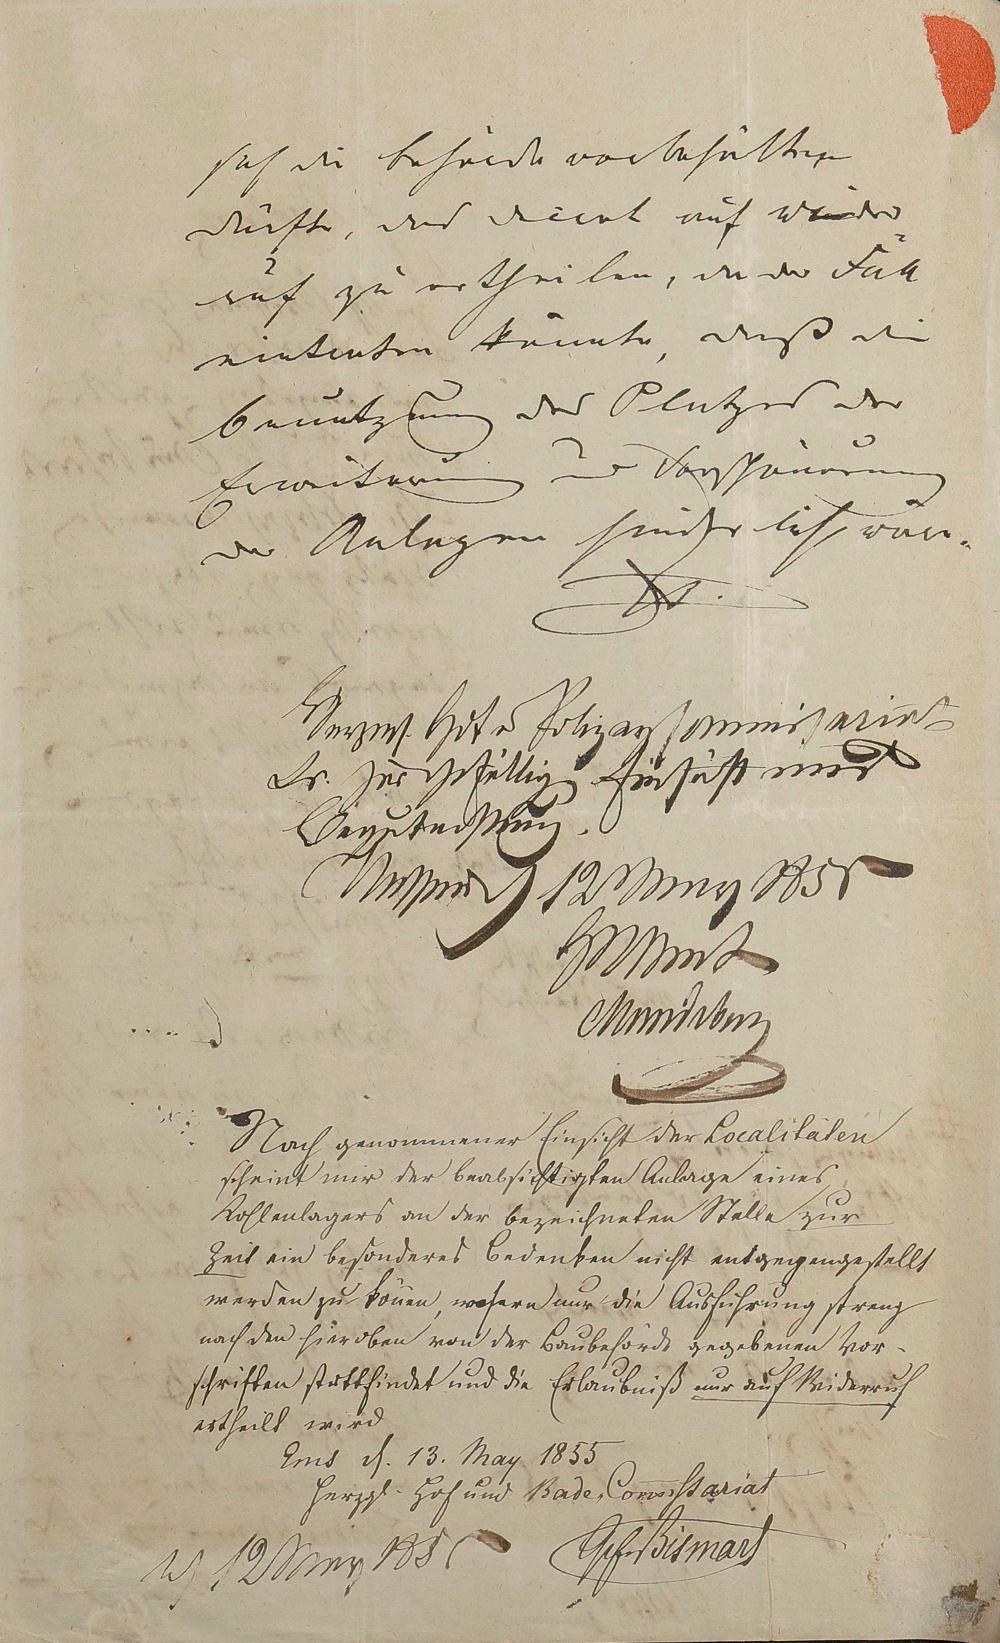 sich die Behörde vorbehalten
dürfte, das decret auf wieder
ruf zu ertheilen, da der Fall
eintreten könnte, daß die
Benutzung des Platzes der
Erweiterung und Verschönerung
der Anlagen hinderlich wäre.
Herzogl. Polizeycommissariat
Er. zur gefälligen Einsicht und
Begutachtung.
Nassau 12 May 1855
Nach genommener Einsicht der Localitäten
scheint mir der beabsichtigten Anlage eines
Kohlenlagers an der bezeichneten Stelle zur
Zeit ein besonderes Bedenken nicht entgegengestellt
werden zu können, wofern nur die Ausführung streng
nach den hieroben von der Baubehörde gegebenen Vor-
schriften stattfindet und die Erlaubniß nur auf Widerruf
ertheilt wird
Ems d. 13. May 1855
Herzgl. Hof und Bade-Commissariat
12 May 1855 Gf. Bismark